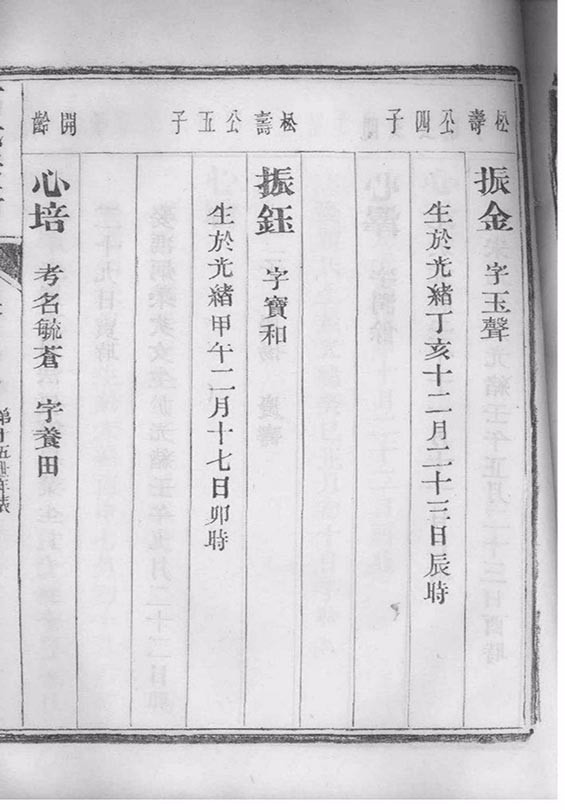 松壽公四子
振金 字玉聲
生於光緒丁亥十二月二十三日辰時
松壽公五子
振鈺 字寶和
生於光緒甲午二月十七日卯時
開齡
心培 考名毓蒼 字養田
第十五世年表